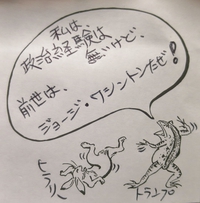 私は、
政治経験は
無いけど、
前世は、
ジョージ・ワシントンだぜ!
ヒラリー
トランプ